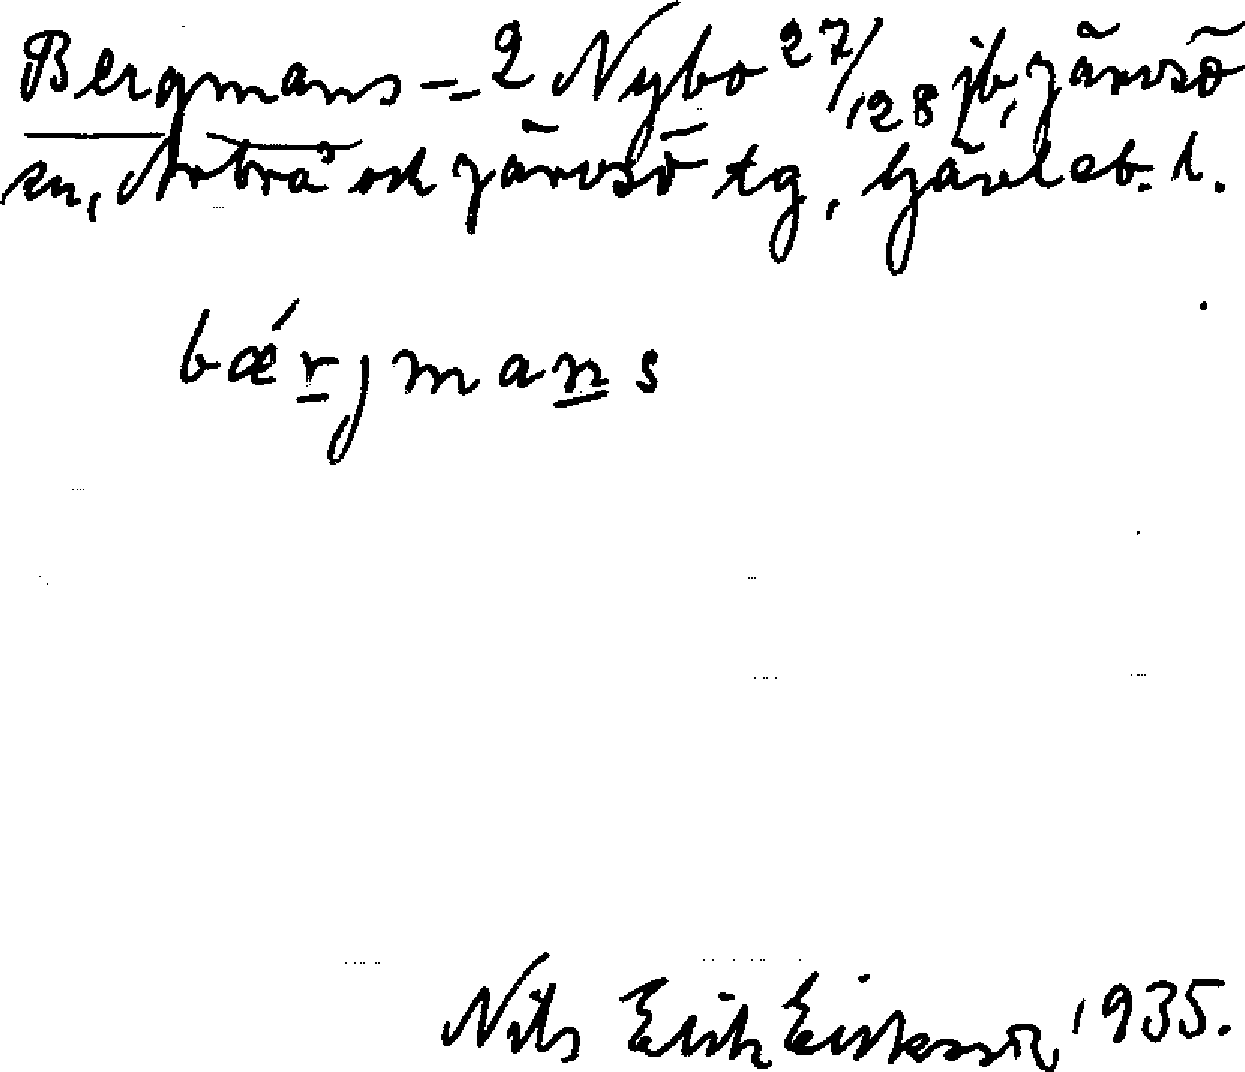 Bergmans = 2 Nybo 27/128 jb, Järvsö
sn, Arbrå och Järvsö tg, Gävleb. l.
bǽrjmans
Nils Erik Eriksson, 1935.